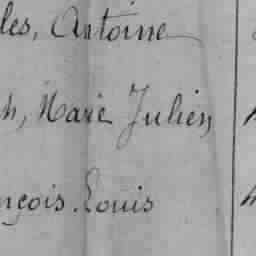 les, Antoine
h, Marie Julien
nçois Louis